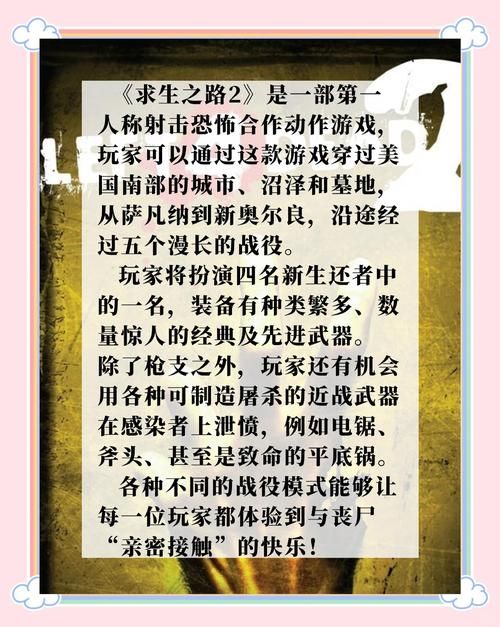 《求生之路2》是一部第一
人称射击恐怖合作动作游戏，
玩家可以通过这款游戏穿过美
国南部的城市、沼泽和墓地，
从萨凡纳到新奥尔良，沿途经
过五个漫长的战役。
玩家将扮演四名新生还者中
的一名，装备有种类繁多、数
量惊人的经典及先进武器。
除了枪支之外，玩家还有机会
用各种可制造屠杀的近战武器
在感染者上泄愤，例如电锯、
斧头、甚至是致命的平底锅。
各种不同的战役模式能够让
每一位玩家都体验到与丧尸
“亲密接触”的快乐！